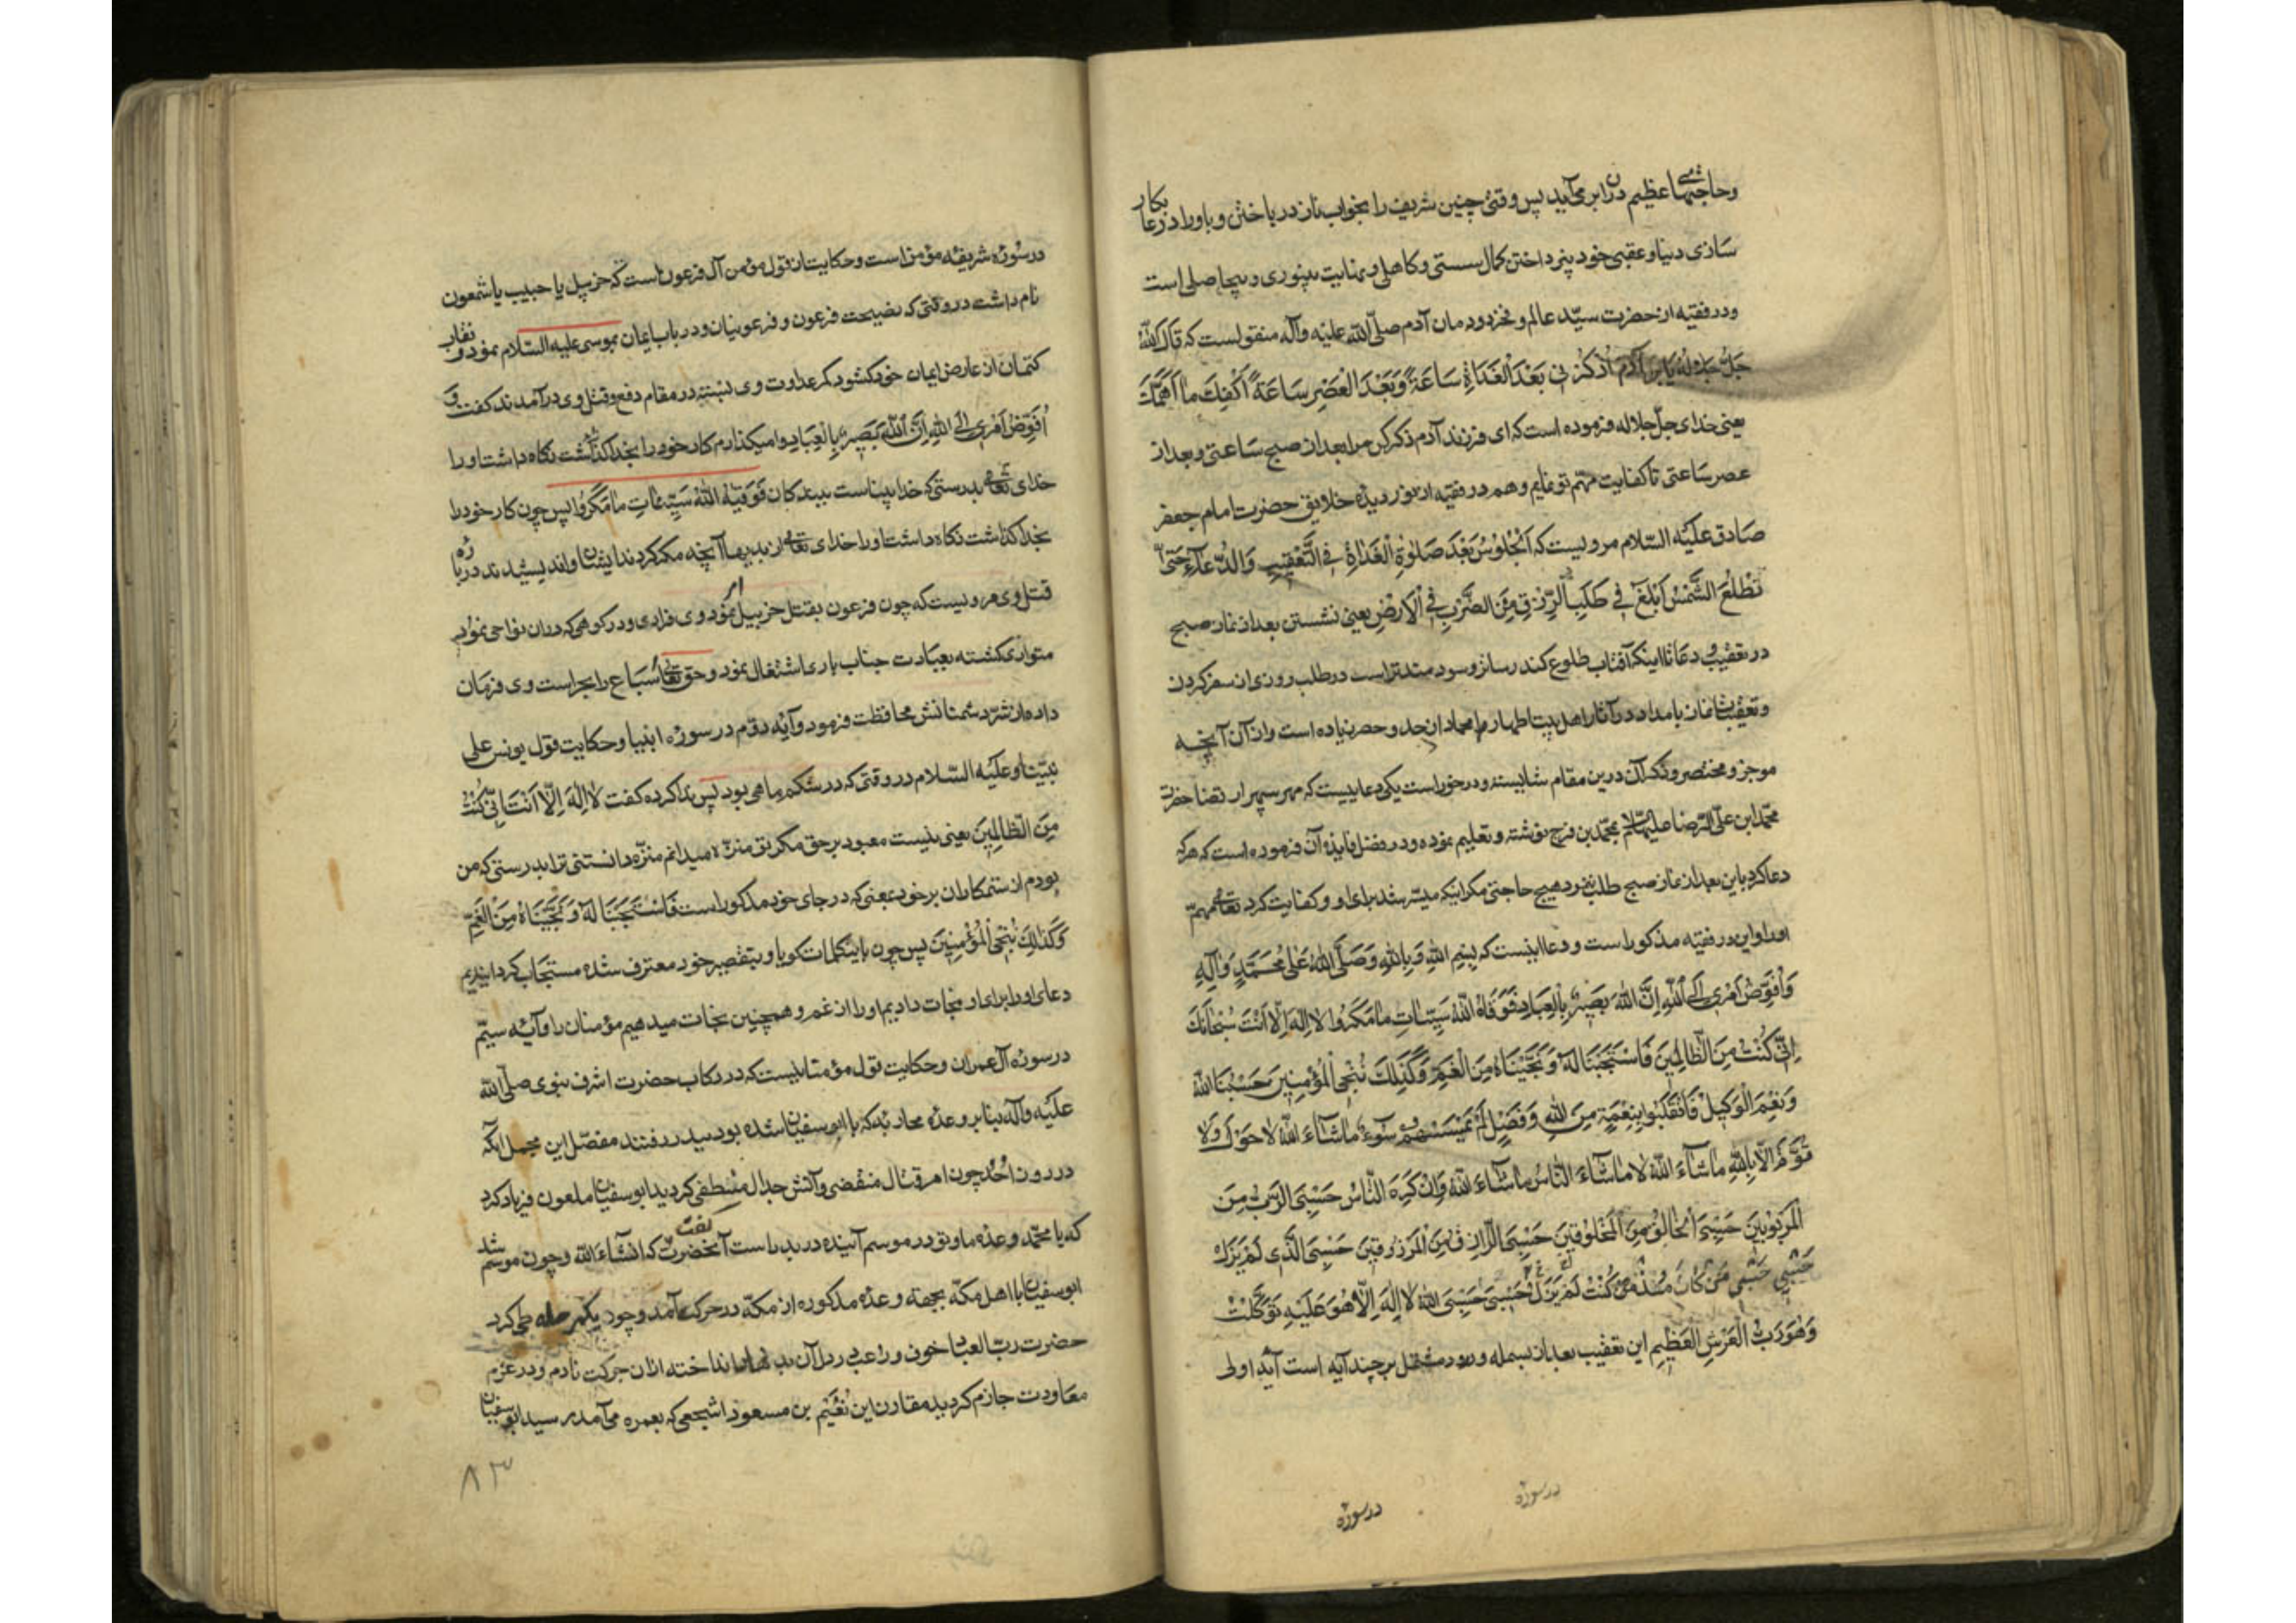 وحاجتهای عظیم در آن برمی‌آید پس وقتی چنین شریف را بخواب ناز در باختن و باوراد و دعا بکار
سازی دنیا و عقبی خود نپرداختن کمال سستی و کاهلی و نهایت بی‌نوری و بیحاصلی است
ودر فقیه از حضرت سیّد عالم و فخر دودمان آدم صلّی الله علیه وآله منقولست که قال الله
جلّ جلاله یا بن آدم اذکرنی بعد الغداة ساعة وبعد العصر ساعة اکفک ما اهمّک
یعنی خدای جلّ جلاله فرموده است که ای فرزند آدم ذکر کن مرا بعد از صبح ساعتی و بعد از
عصر ساعتی تا کفایت مهمّ تو نمایم وهم در فقیه از نور دیدهٔ خلایق حضرت امام جعفر
صادق علیه السّلام مرویست که اَلجُلوسُ بَعْدَ صَلوةِ الغَداةِ فِی التَّعقیبِ وَالدُّعاءِ حَتّی
تَطْلُعَ الشَّمسُ اَبْلَغُ فِی طَلَبِ الرِّزقِ مِنَ الضَّرْبِ فِی الاَرْضِ یعنی نشستن بعد از نماز صبح
در تعقیب و دعا تا اینکه آفتاب طلوع کند رساتر و سودمندتر است در طلب روزی از سفر کردن
وتعقیبات نماز بامداد در آثار اهل بیت اطهار از حد و حصر زیاده است و از آن آنچه
موجز و مختصر و ذکر آن درین مقام شایسته و در خور است یکی دعاییست که مهر سپهر ارتضا حضرت
محمّد ابن علیّ الرّضا علیهما السّلام بمحمّد بن فرج نوشته و تعلیم نموده و در فضل آن فرموده است که هر که
دعا کرد باین بعد از نماز صبح طلب نبرد هیچ حاجتی مگر اینکه میسّر شد برای او و کفایت کرد تعالی مهمّ
او را و این در فقیه مذکور است و دعا اینست که بِسْمِ اللهِ وَبِاللهِ وَصَلَّی اللهُ عَلی مُحَمَّدٍ وَآلِهِ
وَاُفَوِّضُ اَمْری اِلَی اللهِ اِنَّ اللهَ بَصیرٌ بِالعِبادِ فَوَقاهُ اللهُ سَیِّئاتِ ما مَکَروا لا اِلهَ اِلّا اَنْتَ سُبْحانَکَ
اِنّی کُنْتُ مِنَ الظّالِمینَ فَاسْتَجَبْنا لَهُ وَنَجَّیْناهُ مِنَ الغَمِّ وَکَذلِکَ نُنْجِی المُؤْمِنینَ حَسْبُنَا اللهُ
وَنِعْمَ الوَکیلُ فَانْقَلَبوا بِنِعْمَةٍ مِنَ اللهِ وَفَضْلٍ لَمْ یَمْسَسْهُمْ سُوءٌ ما شاءَ اللهُ لا حَوْلَ وَلا
قُوَّةَ اِلّا بِاللهِ ما شاءَ اللهُ لا ما شاءَ النّاسُ ما شاءَ اللهُ وَاِنْ کَرِهَ النّاسُ حَسْبِیَ الرَّبُّ مِنَ
المَرْبوبینَ حَسْبِیَ الخالِقُ مِنَ المَخْلوقینَ حَسْبِیَ الرّازِقُ مِنَ المَرْزوقینَ حَسْبِیَ الَّذی لَمْ یَزَلْ
حَسْبی حَسْبی مَنْ کانَ مُنْذُ کُنْتُ لَمْ یَزَلْ حَسْبی حَسْبِیَ اللهُ لا اِلهَ اِلّا هُوَ عَلَیْهِ تَوَکَّلْتُ
وَهُوَ رَبُّ العَرْشِ العَظیمِ این تعقیب بعد از بسمله و درود مشتمل بر چند آیه است آیهٔ اولی
در سورهٔ
در سورهٔ
در سورهٔ شریفهٔ مؤمن است و حکایت از قول مؤمن آل فرعون است که حزبیل یا حبیب یا شمعون
نام داشت در وقتی که نصیحت فرعون و فرعونیان و در باب ایمان بموسی علیه السّلام نمود و نقاب
کتمان از عارض ایمان خود گشود که عداوت وی بسته در مقام دفع و قتل وی درآمدند گفت وَ
اُفَوِّضُ اَمْری اِلَی اللهِ اِنَّ اللهَ بَصیرٌ بِالعِبادِ وا میگذارم کار خود را بخدا گذاشت نگاه داشت او را
خدای تعالی بدرستی که خدا بیناست ببندگان فَوَقیهُ اللهُ سَیِّئاتِ ما مَکَروا پس چون کار خود را
بخدا گذاشت نگاه داشت او را خدای تعالی از بدیها آنچه مکر کردند ایشان و اندیشیدند دربارهٔ
قتل وی مرویست که چون فرعون بقتل حزبیل امر نمود وی فراری و در کوهی که در آن نواحی بود
متواری گشته بعبادت جناب باری اشتغال نمود و حق تعالی سباع را بحراست وی فرمان
داده از شرّ دشمنانش محافظت فرمود و آیهٔ دوّم در سورهٔ انبیا و حکایت قول یونس علی
نبیّنا و علیه السّلام در وقتی که در شکم ماهی بود پس ندا کرده گفت لا اِلهَ اِلّا اَنْتَ اِنّی کُنْتُ
مِنَ الظّالِمینَ یعنی نیست معبود بر حق مگر تو منزّه میدانم منزّه دانستنی ترا بدرستی که من
بودم از ستمکاران بر خود بمعنی که در جای خود مذکور است فَاسْتَجَبْنا لَهُ وَنَجَّیْناهُ مِنَ الغَمِّ
وَکَذلِکَ نُنْجِی المُؤْمِنینَ پس چون باین کلمات گویا و بتقصیر خود معترف شده مستجاب گردانیدیم
دعای او را برای او و نجات دادیم او را از غم و همچنین نجات میدهیم مؤمنان را و آیهٔ سیّم
در سورهٔ آل عمران و حکایت قول مؤمنانیست که در رکاب حضرت اشرف نبوی صلّی الله
علیه وآله بنا بر وعدهٔ محاربهٔ که با ابوسفیان شده بود ببدر رفتند مفصّل این مجمل آنکه
در روز اُحُد چون امر قتال منقضی و آتش جدال منطفی گردید ابوسفیان ملعون فریاد کرد
که یا محمّد وعدهٔ ما و تو در موسم آینده در بدر است آنحضرت گفت که انشاءالله و چون موسم شد
ابوسفیان با اهل مکّه بجهة وعدهٔ مذکوره از مکّه در حرکت آمد و چون یکمرحله طی کرد
حضرت ربّ العباد خوف و رعب در دل آن انداخته از آن حرکت نادم و در عزم
معاودت جازم گردید مقارن این نُعَیم بن مسعود اشجعی که بعمره می‌آمد رسید ابوسفیان
۸۳